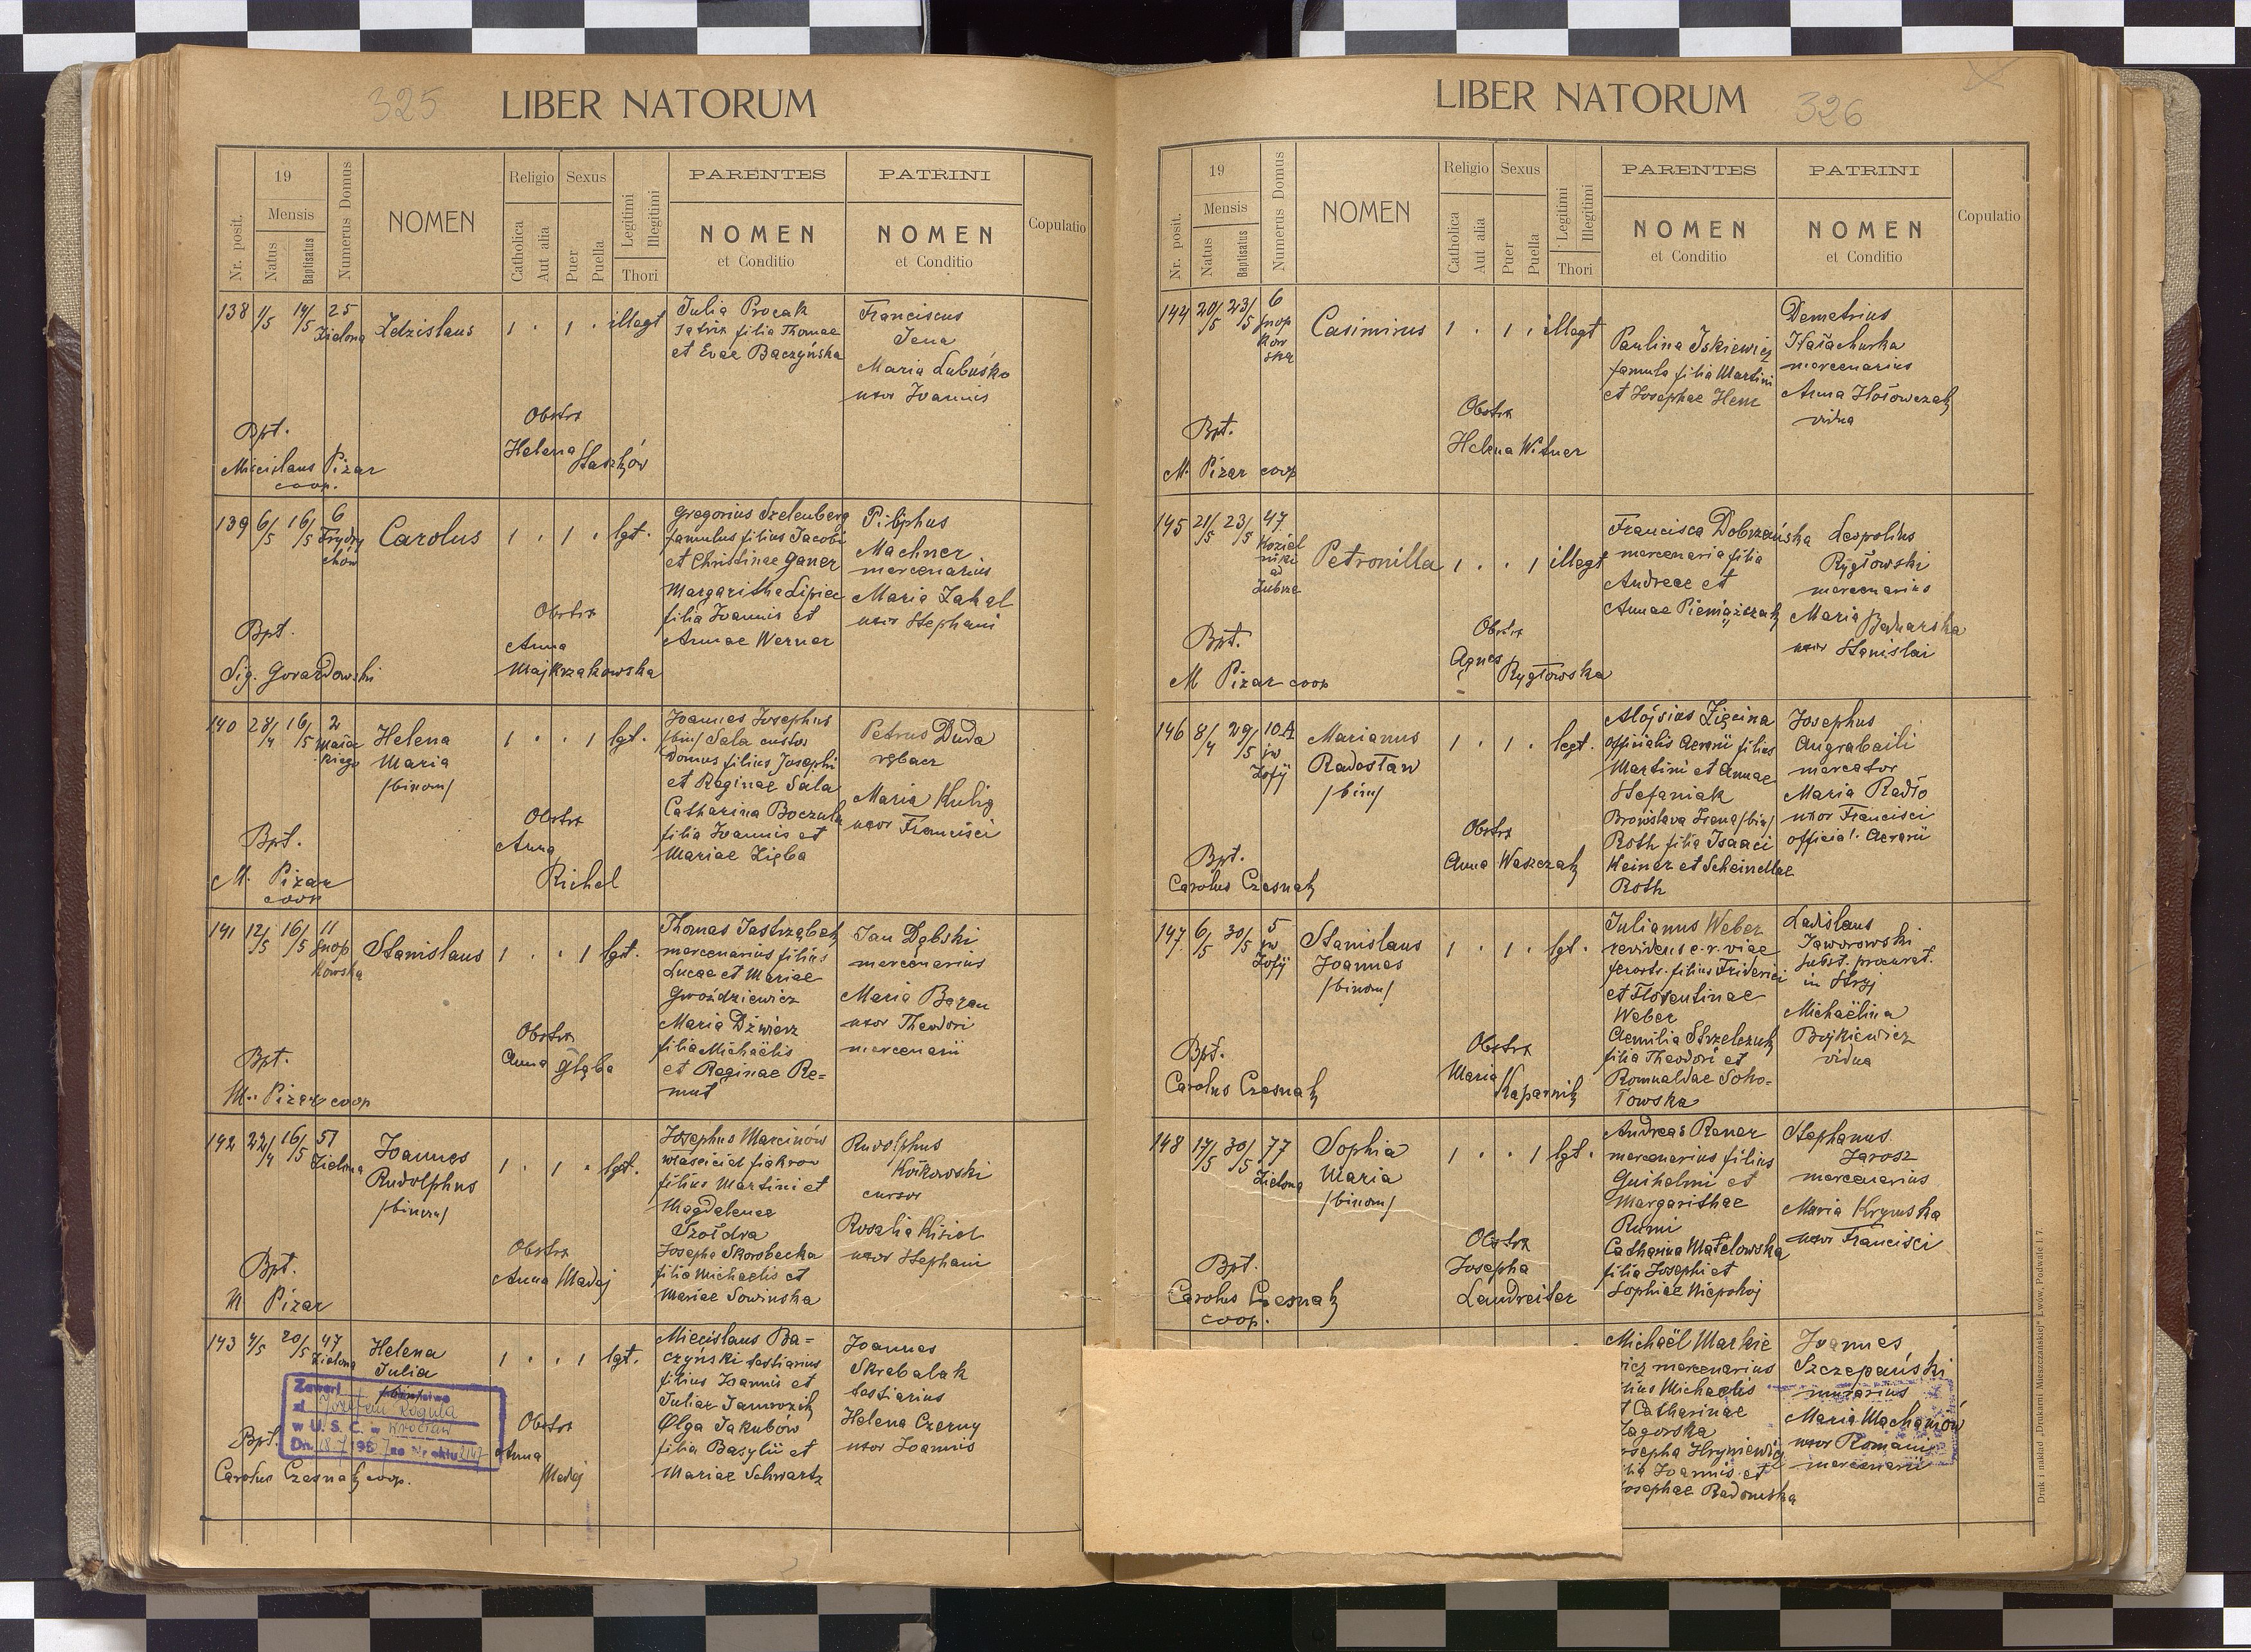 325 LIBER NATORUM
Nr. posit.
19
Mensis
Natus
Baptisatus
Numerus Domus
NOMEN
Religio
Catholica
Aut alia
Sexus
Puer
Puella
Legitimi
Illegitimi
Thori
PARENTES
NOMEN
et Conditio
PATRINI
NOMEN
et Conditio
Copulatio
138 1/5 14/5 25
Zielona
Zdzislaus
1 . 1 . illegt
Julia Procak
filia Thomae
et Evae Baczyńska
Franciscus
Jena
Maria Lubuśko
uxor Joannis
Obstrx
Helena Staszków
Bpt.
Miecislaus Pizar
coop.
139 6/5 16/5 6
Frydry
chów
Carolus
1 . 1 . lgt.
Gregorius Szelenberg
famulus filius Jacobi
et Christinae Ganer
Margaritha Lipiec
filia Joannis et
Annae Werner
Machner
mercenarius
Maria Zahal
uxor Stephani
Obstrx
Anna
Majkrzakowska
Bpt.
Sig. Gorazdowski
140 28/4 16/5 2
Helena
Maria
/binom/
1 . . 1 lgt.
Joannes Josephus
/bin/ Sala custos
domus filius Josephi
et Reginae Sala
Catharina Boczula
filia Joannis et
Mariae Zięba
Petrus Duda
rębacz
Maria Kulig
uxor Francisci
Obstrx
Anna
Richel
Bpt.
M. Pizar
coop
141 12/5 16/5 11
Snop
kowska
Stanislaus
1 . . 1 lgt.
Thomas Jastrząbek
mercenarius filius
Lucae et Mariae
Gwoździewicz
Maria Dźwierz
filia Michaëlis
et Reginae Re=
mut
Jan Dębski
mercenarius
Maria Bazan
uxor Theodori
mercenarii
Obstrx
Anna Głąba
Bpt.
M. Pizar coop
142 22/4 16/5 51
Zielona
Joannes
Rudolphus
/binom/
1 . 1 . lgt.
Josephus Marcinów
właściciel fiakrów
filius Martini et
Magdalenae
Szołdra
Josepha Skorobecka
filia Michaelis et
Mariae Sowinska
Rudolphus
Kotkowski
cursor
Rosalia Kisiel
uxor Stephani
Obstrx
Anna Madej
Bpt.
M Pizar
143 4/5 20/5 47
Zielona
Helena
Julia
1 . . 1 lgt.
Miecislaus Ba=
czyński
filius Joannis et
Juliae Jamrozik
Olga Jakubów
filia Basylii et
Mariae Schwartz
Joannes
Skrabalak
Helena Czerny
uxor Joannis
Zawarł
z Józefem Rogula
w U. S. C. w Wrocław
Obstrx
Anna
Madej
Bpt.
Carolus Czesnak coop.
LIBER NATORUM 326
Nr. posit.
19
Mensis
Natus
Baptisatus
Numerus Domus
NOMEN
Religio
Catholica
Aut alia
Sexus
Puer
Puella
Legitimi
Illegitimi
Thori
PARENTES
NOMEN
et Conditio
PATRINI
NOMEN
et Conditio
Copulatio
144 20/5 23/5 6
Snop
kow
ska
Casimirus
1 . 1 . illegt
Paulina Iskiewicz
famula filia Martini
et Josephae Henc
Demetrius
mercenarius
Anna Hołowczak
vidua
Obstrx
Helena Witner
Bpt.
M. Pizar coop
145 21/5 23/5 47
Koziel
niki
ad
Zubrze
Petronilla
1 . . 1 illegt
Francisca Dobrzańska
mercenaria filia
Andreae et
Annae Pieniążczak
Leopoldus
Rygłowski
mercenarius
Maria Bednarska
uxor Stanislai
Obstrx
Agnes Rygłowska
Bpt.
M Pizar coop
146 8/4 29/5 10A
św
Zofij
Marianus
Radosław
/bin/
1 . 1 . legt.
Aloysius Zięcina
officialis Aerarii filius
Martini et Annae
Stefaniak
Bronislava Irena /bin/
Roth filia Isaaci
Heiner et Scheindlae
Roth
Josephus
Augrabaiti
mercator
Maria Radło
uxor Francisci
official. Aerarii
Obstrx
Anna Waszczak
Bpt.
Carolus Czesnak
147. 6/5 30/5 5
św
Zofij
Stanislaus
Joannes
/binom/
1 . 1 . lgt.
Julianus Weber
revidens c. r. viae
ferratr. filius Friderici
et Florentinae
Weber
Aemilia Strzelczuk
filia Theodori et
Romualdae Soko=
łowska
Ladislaus
Jaworowski
subst. procurat.
in Stryj
Michaëlina
Bojkiewicz
vidua
Obstrx
Maria
Kaparnik
Bpt.
Carolus Czesnak
148 17/5 30/5 77
Zielona
Sophia
Maria
/binom/
1 . . 1 lgt.
Andreas Rener
mercenarius filius
Guihelmi et
Margarithae
Rumi
Catharina Matelowska
filia Josephi et
Sophiae Niepokoj
Stephanus
Jarosz
mercenarius
Maria Krymska
uxor Francisci
Obstrx
Josepha
Landreiter
Bpt.
Carolus Czesnak
coop.
Michaël Markie
wicz mercenarius
Michaelis
Catharinae
Zagorska
Hryniewicz
Joannis et
Josephae Radomska
Joannes
Szczepański
murarius
Maria Machaniów
uxor Romani
mercenarii
Druk i nakład „Drukarni Mieszczańskiej" Lwów, Podwale l. 7.